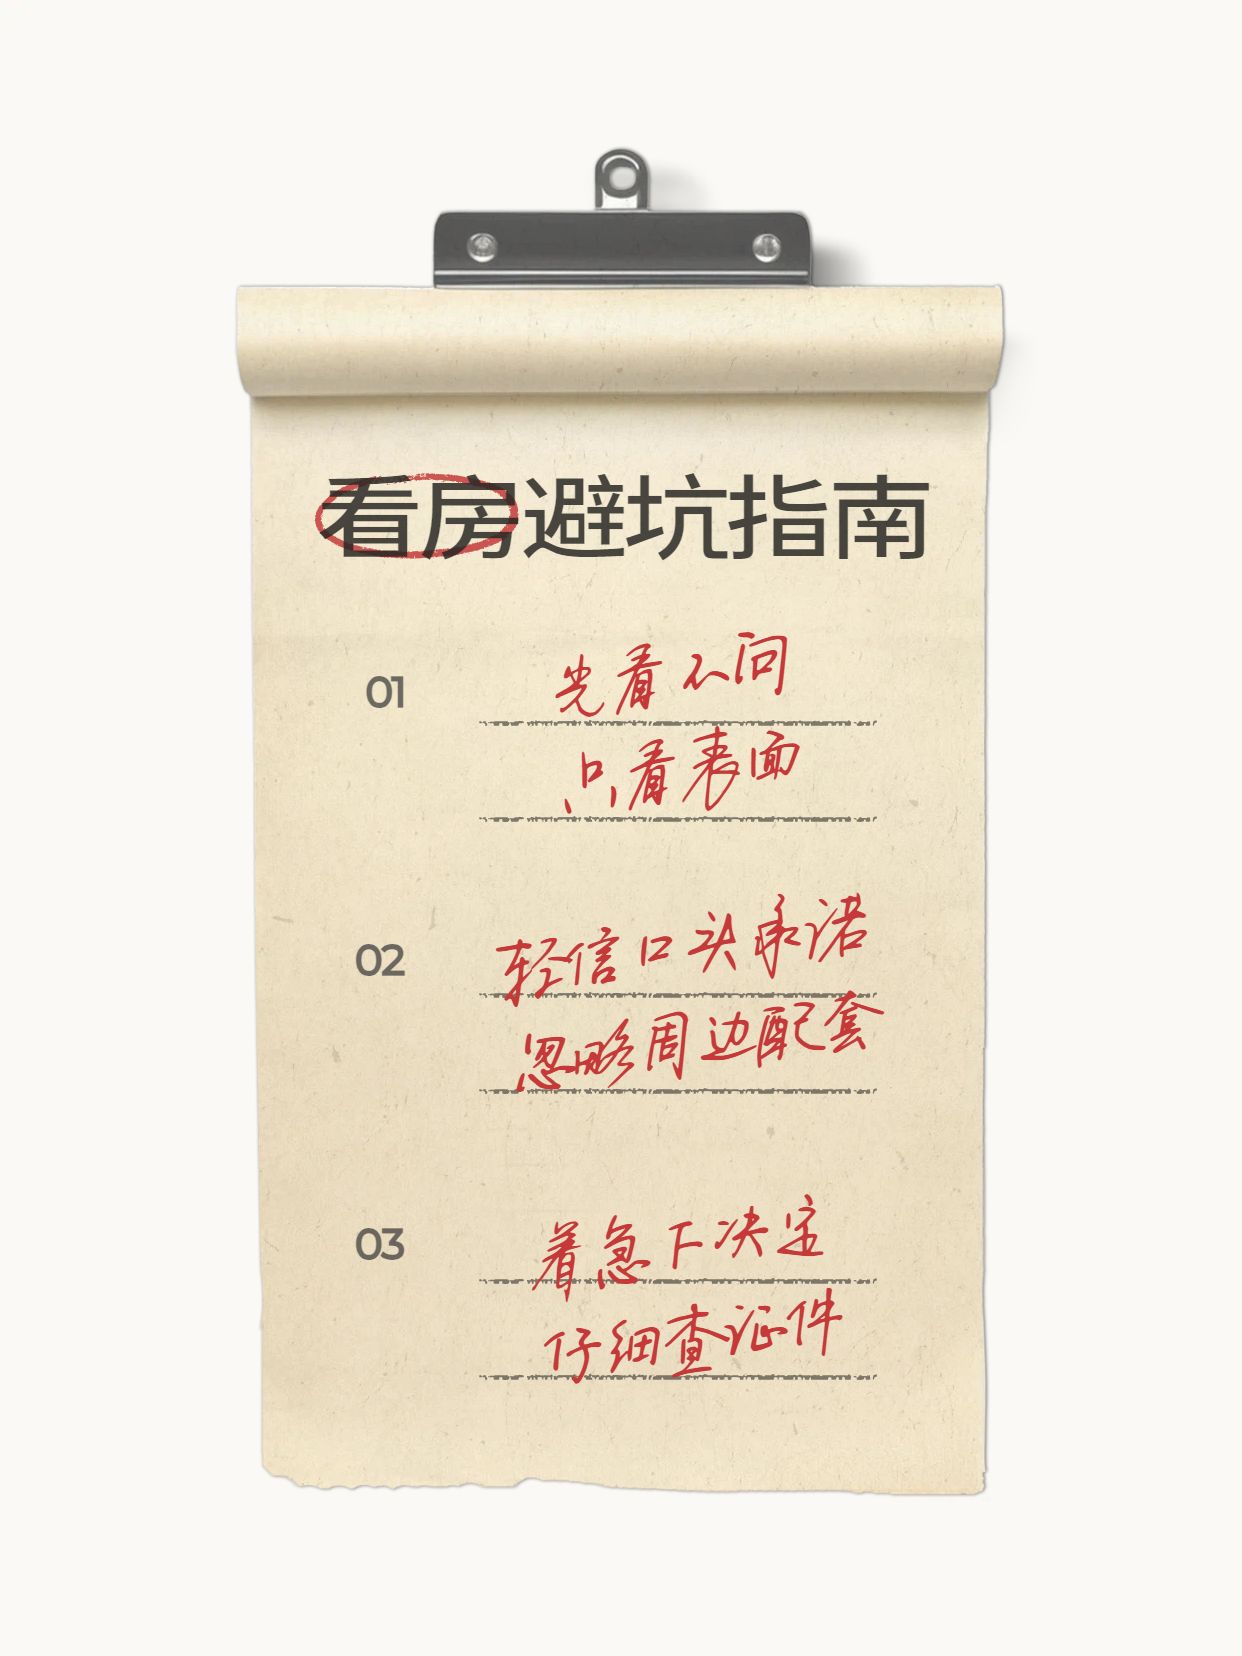 看房避坑指南
01
先看不问
只看表面
02
轻信口头承诺
忽略周边配套
03
着急下决定
仔细查证件